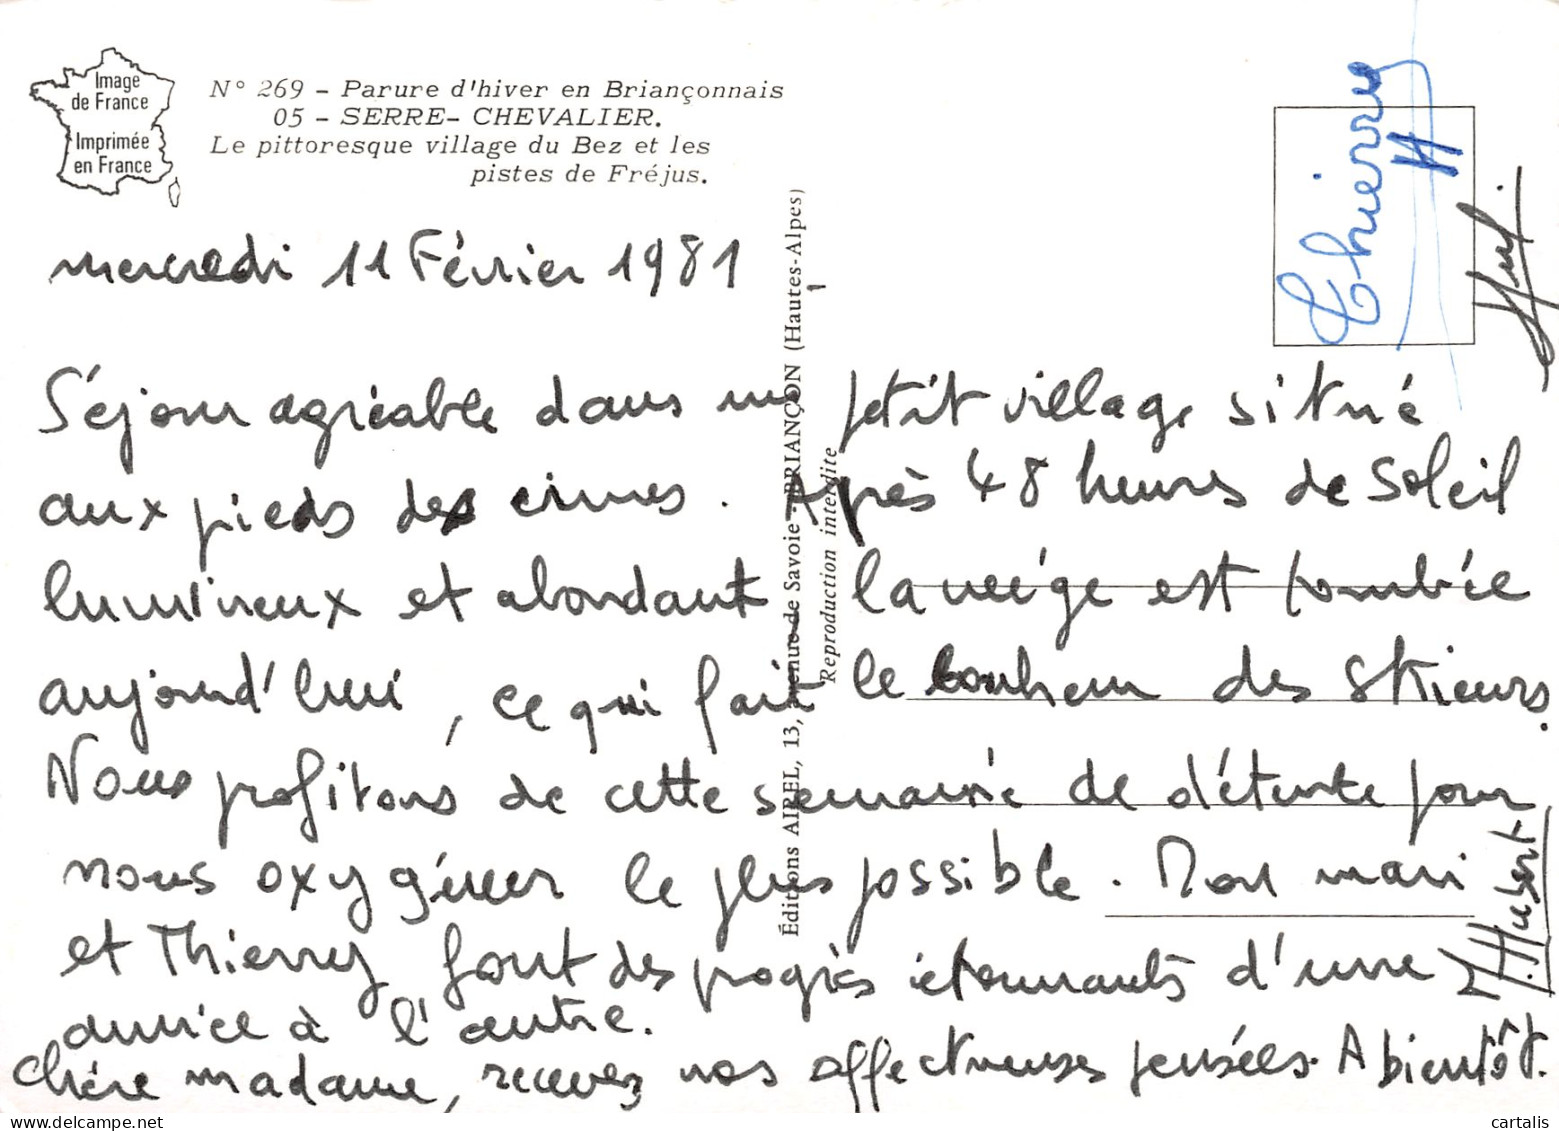 Image
de France
Imprimée
en France
N° 269 - Parure d'hiver en Briançonnais
05 - SERRE- CHEVALIER.
Le pittoresque village du Bez et les
pistes de Fréjus.
mercredi 11 Février 1981
Séjour agréable dans un petit village situé
aux pieds des cimes. Après 48 heures de soleil
lumineux et abondant la neige est tombée
aujourd'hui, ce qui fait le bonheur des skieurs.
Nous profitons de cette semaine de détente pour
nous oxygéner le plus possible. Mon mari
et Thierry font des progrès étonnants d'une
année à l'autre.
Chère madame, recevez nos affectueuses pensées. A bientôt.
Éditions AIREL, 13, avenue de Savoie - BRIANÇON (Hautes-Alpes)
Reproduction interdite
Thierry
H
Hubert
cartalis